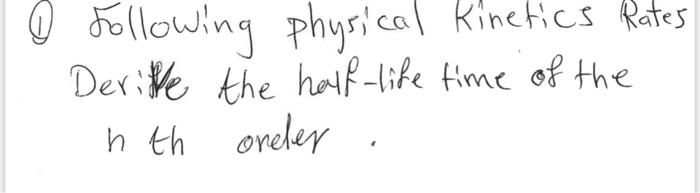 ① Following physical Kinetics Rates
Derive the half-life time of the
n th oreder .